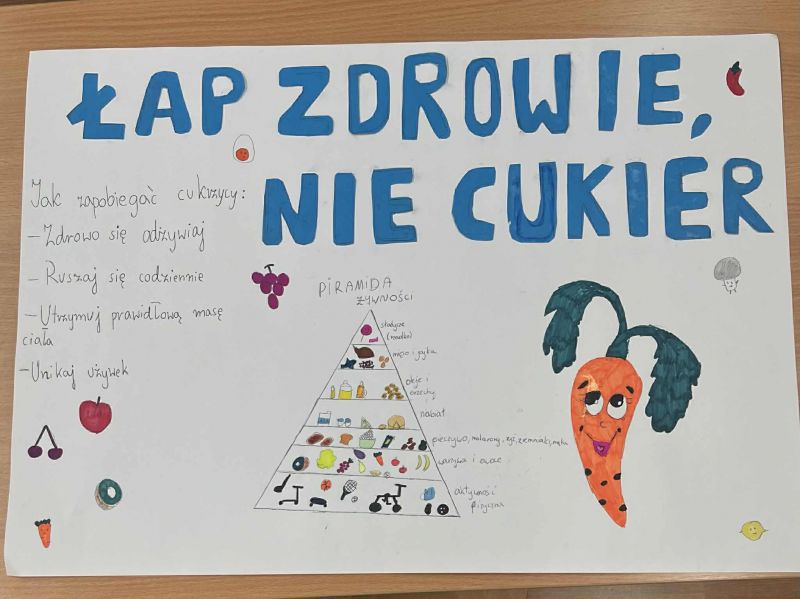 ŁAP ZDROWIE,
NIE CUKIER
Jak zapobiegać cukrzycy:
- Zdrowo się odżywiaj
- Ruszaj się codziennie
- Utrzymuj prawidłową masę
ciała
- Unikaj używek
PIRAMIDA
ŻYWNOŚCI
słodycze
(rzadko)
mięso i jajka
oleje i
orzechy
nabiał
pieczywo, makarony, ryż, ziemniaki, mąka
warzywa i owoce
aktywność
fizyczna